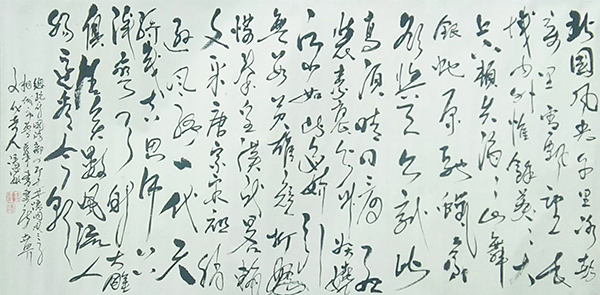 北国风光千里冰封
万里雪飘望长
城内外惟余莽莽大
河上下顿失滔滔山舞
银蛇原驰蜡象
欲与天公试比
高须晴日看红
装素裹分外妖娆
江山如此多娇引
无数英雄竞折腰
惜秦皇汉武略输
文采唐宗宋祖稍
逊风骚一代天
骄成吉思汗只
识弯弓射大雕
俱往矣数风流人
物还看今朝